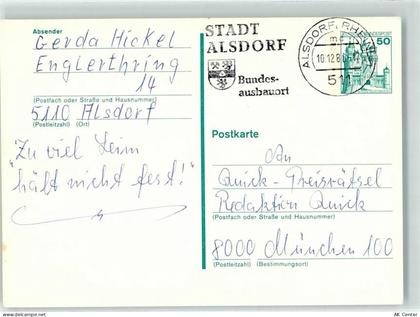 Absender
Gerda Hickel
Englerthring
14
(Postfach oder Straße und Hausnummer)
5110 Alsdorf
(Postleitzahl) (Ort)
"Zu viel Leim
hält nicht fest!"
STADT
ALSDORF
Bundes-
ausbauort
ALSDORF, RHEINL
10.12.8
511
50
Postkarte
An
Quick-Preisrätsel
Redaktion Quick
(Postfach oder Straße und Hausnummer)
8000 München 100
(Postleitzahl) (Bestimmungsort)
AK Center